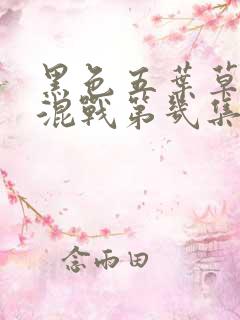 黑色五葉草
混戰第幾集
念雨田